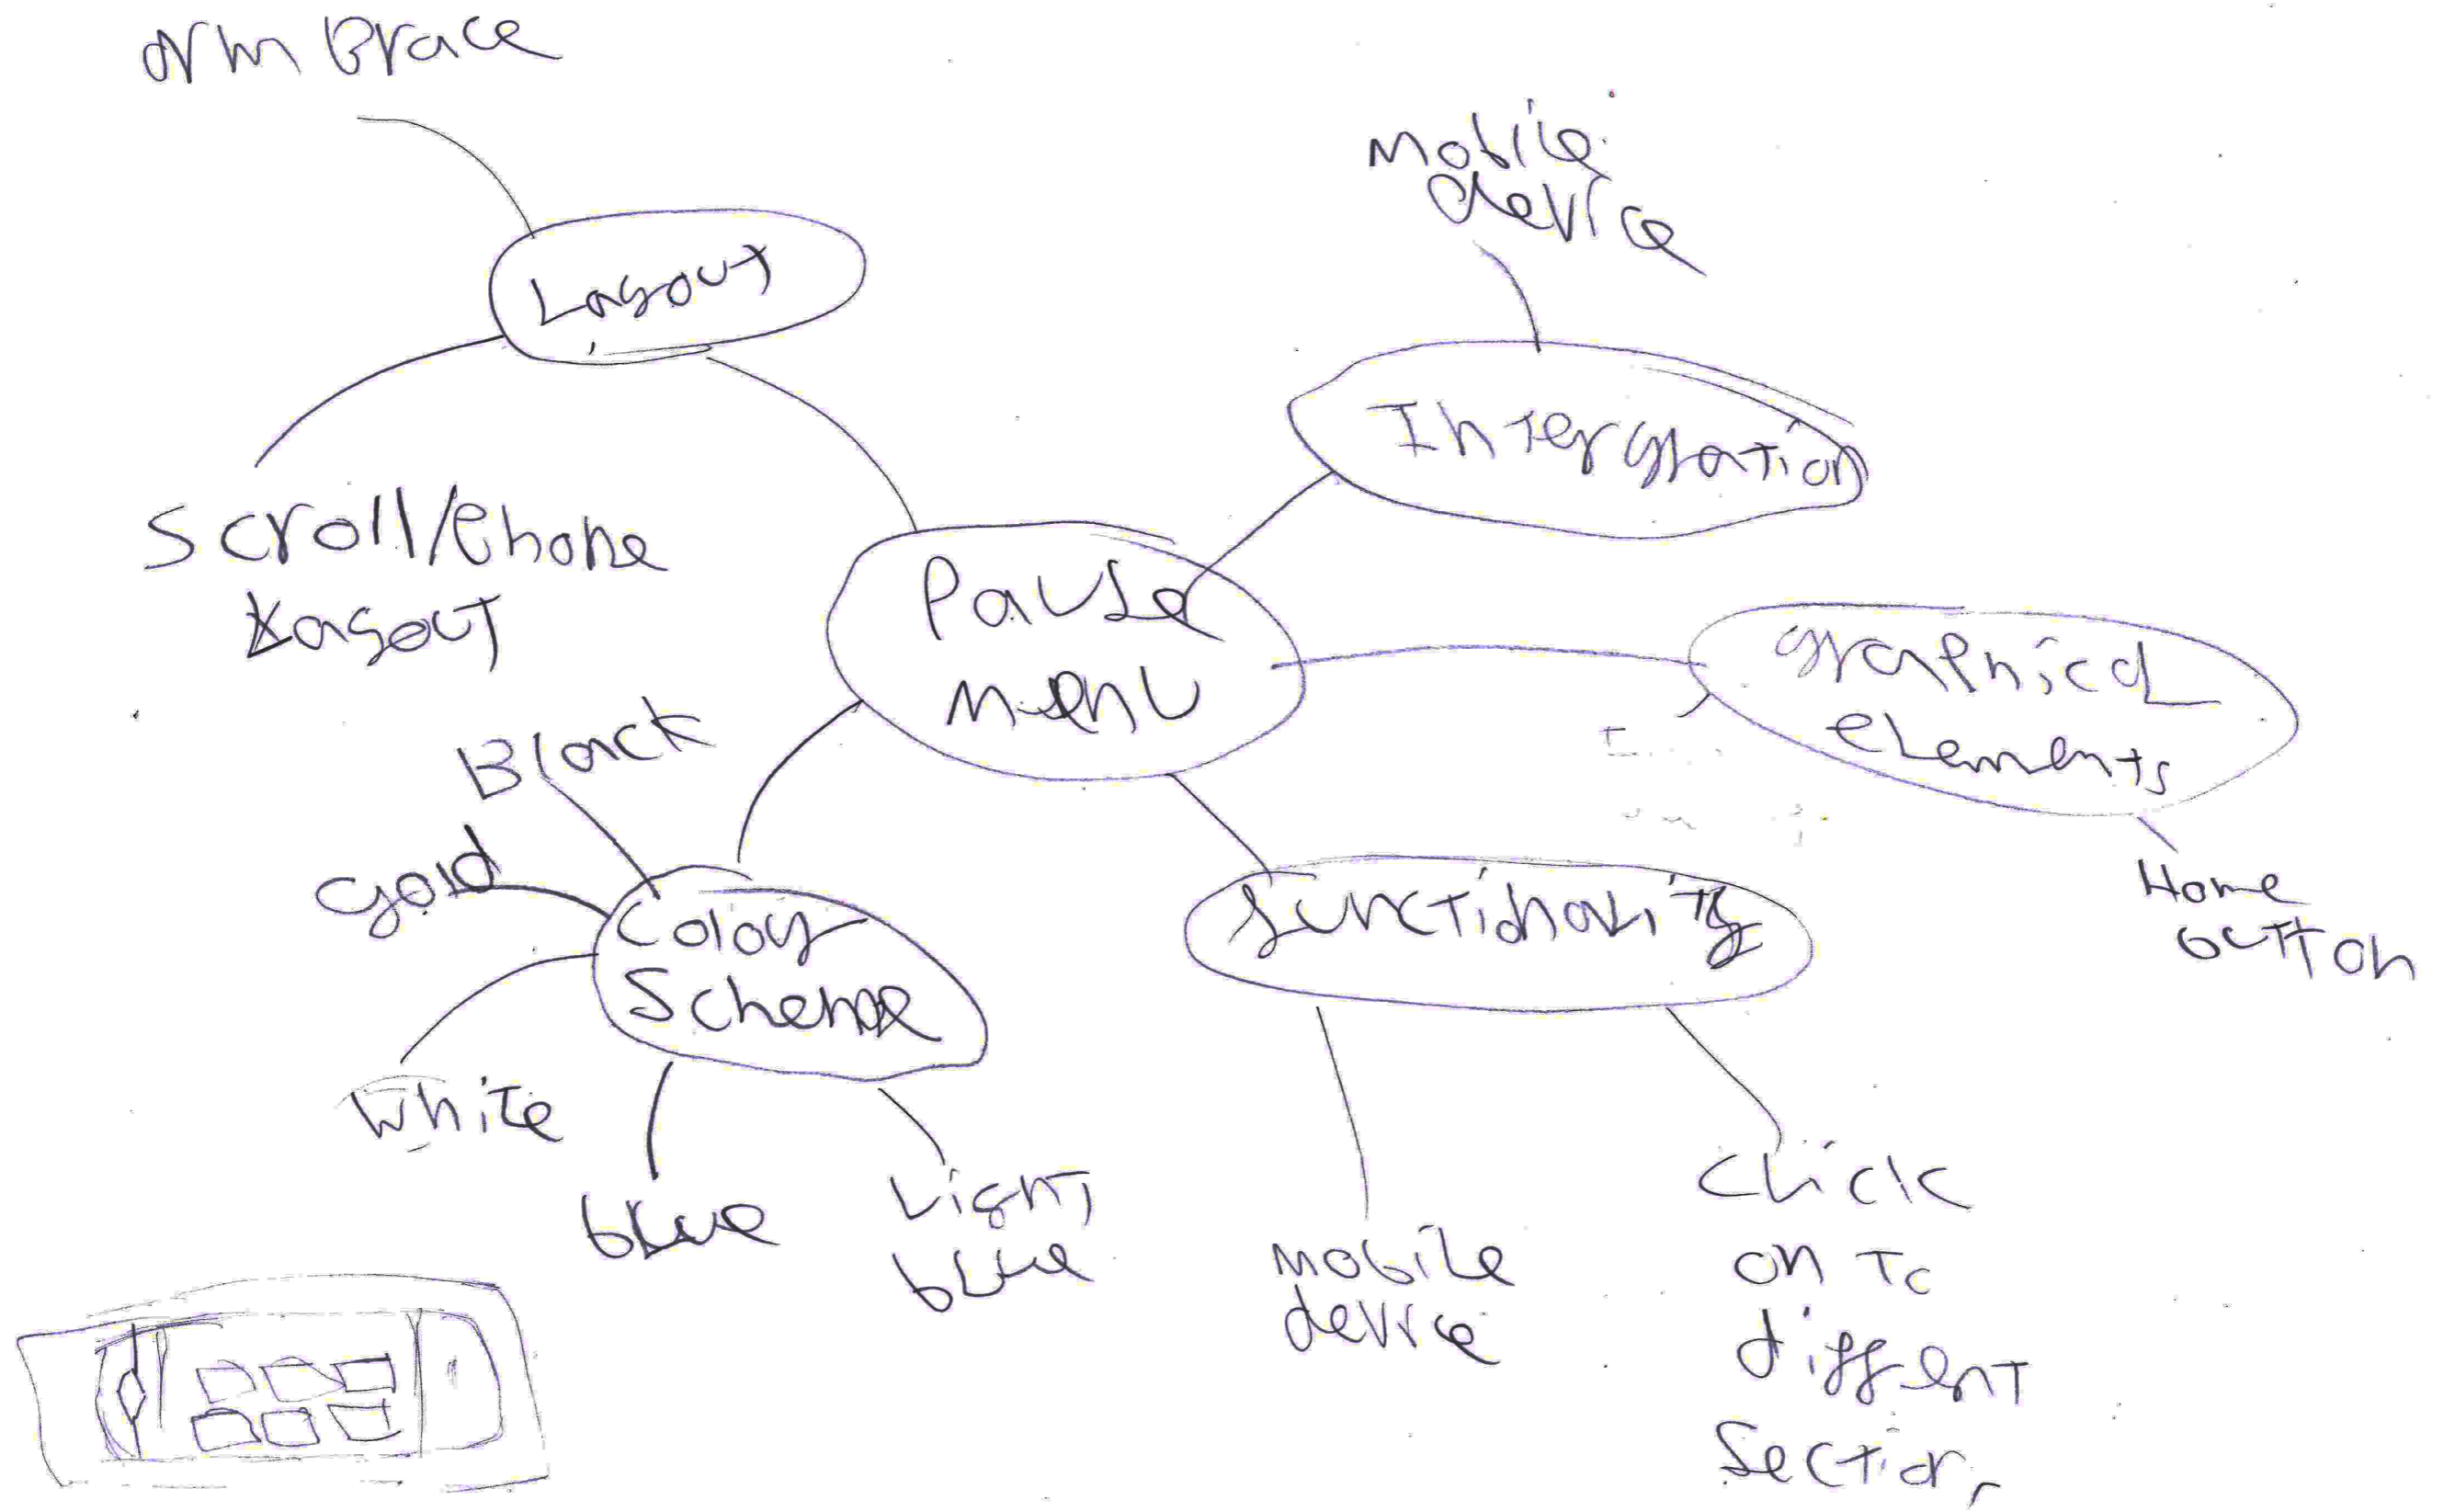 Arm Brace
Layout
Scroll/Phone
Layout
Mobile
device
Intergration
Pause
menu
graphical
elements
Home
button
Black
Gold
Color
Scheme
White
blue
Light
blue
functionality
Mobile
device
Click
on to
differnt
Section